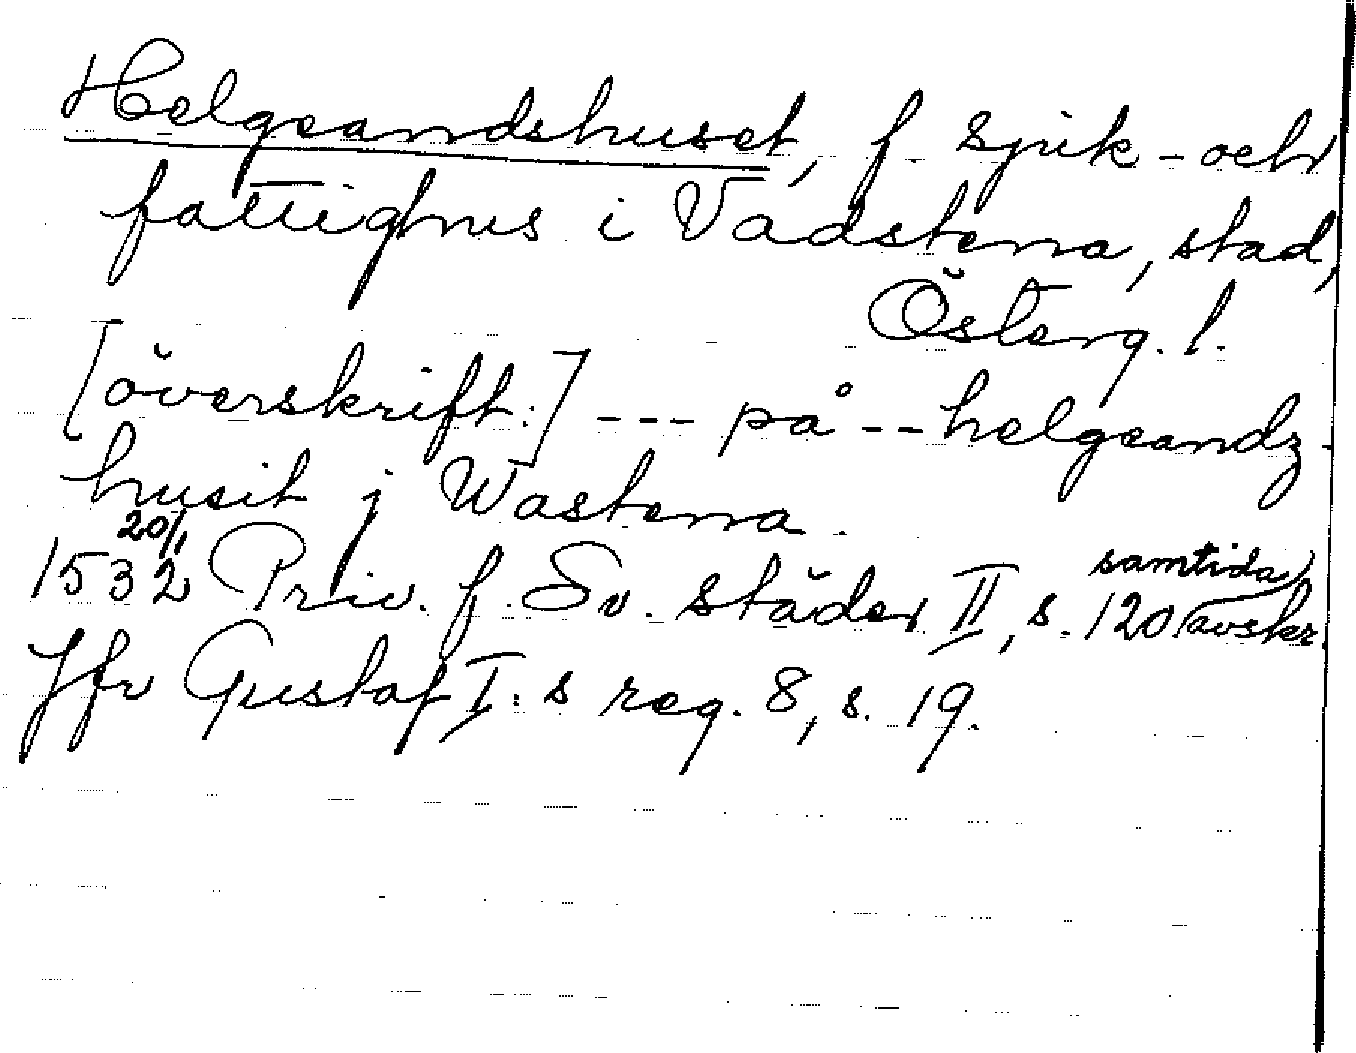 Helgeandshuset, f. sjuk- och
fattighus i Vadstena, stad,
Österg. l.
[överskrift:] --- på -- helgeandz-
husit j Wastena.
1532 20/1 Priv. f. Sv. städer II, s. 120 (samtida avskr.)
Jfr Gustaf I:s reg. 8, s. 19.